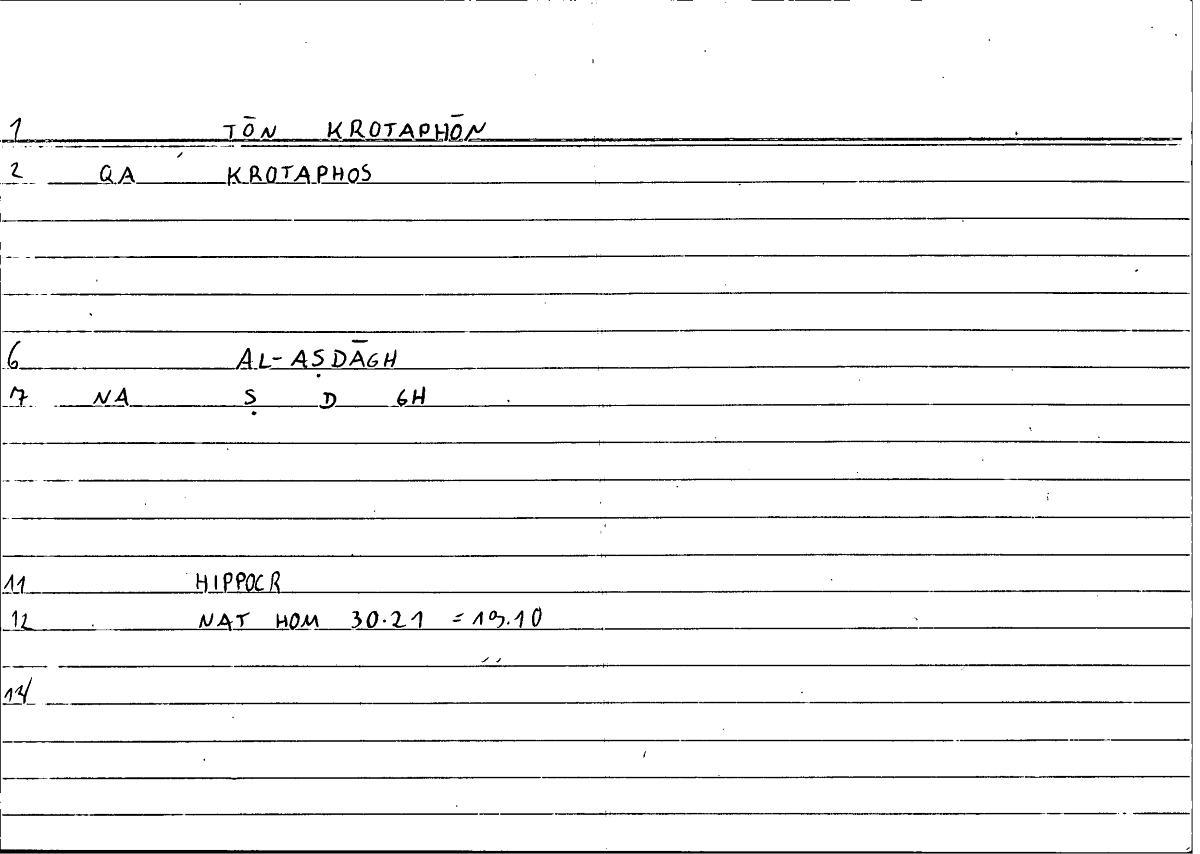 1 TŌN KROTAPHŌN
2 QA KROTAPHOS
6 AL-AṢDĀGH
7 NA Ṣ D GH
11 HIPPOCR
12 NAT HOM 30.21 = 19.10